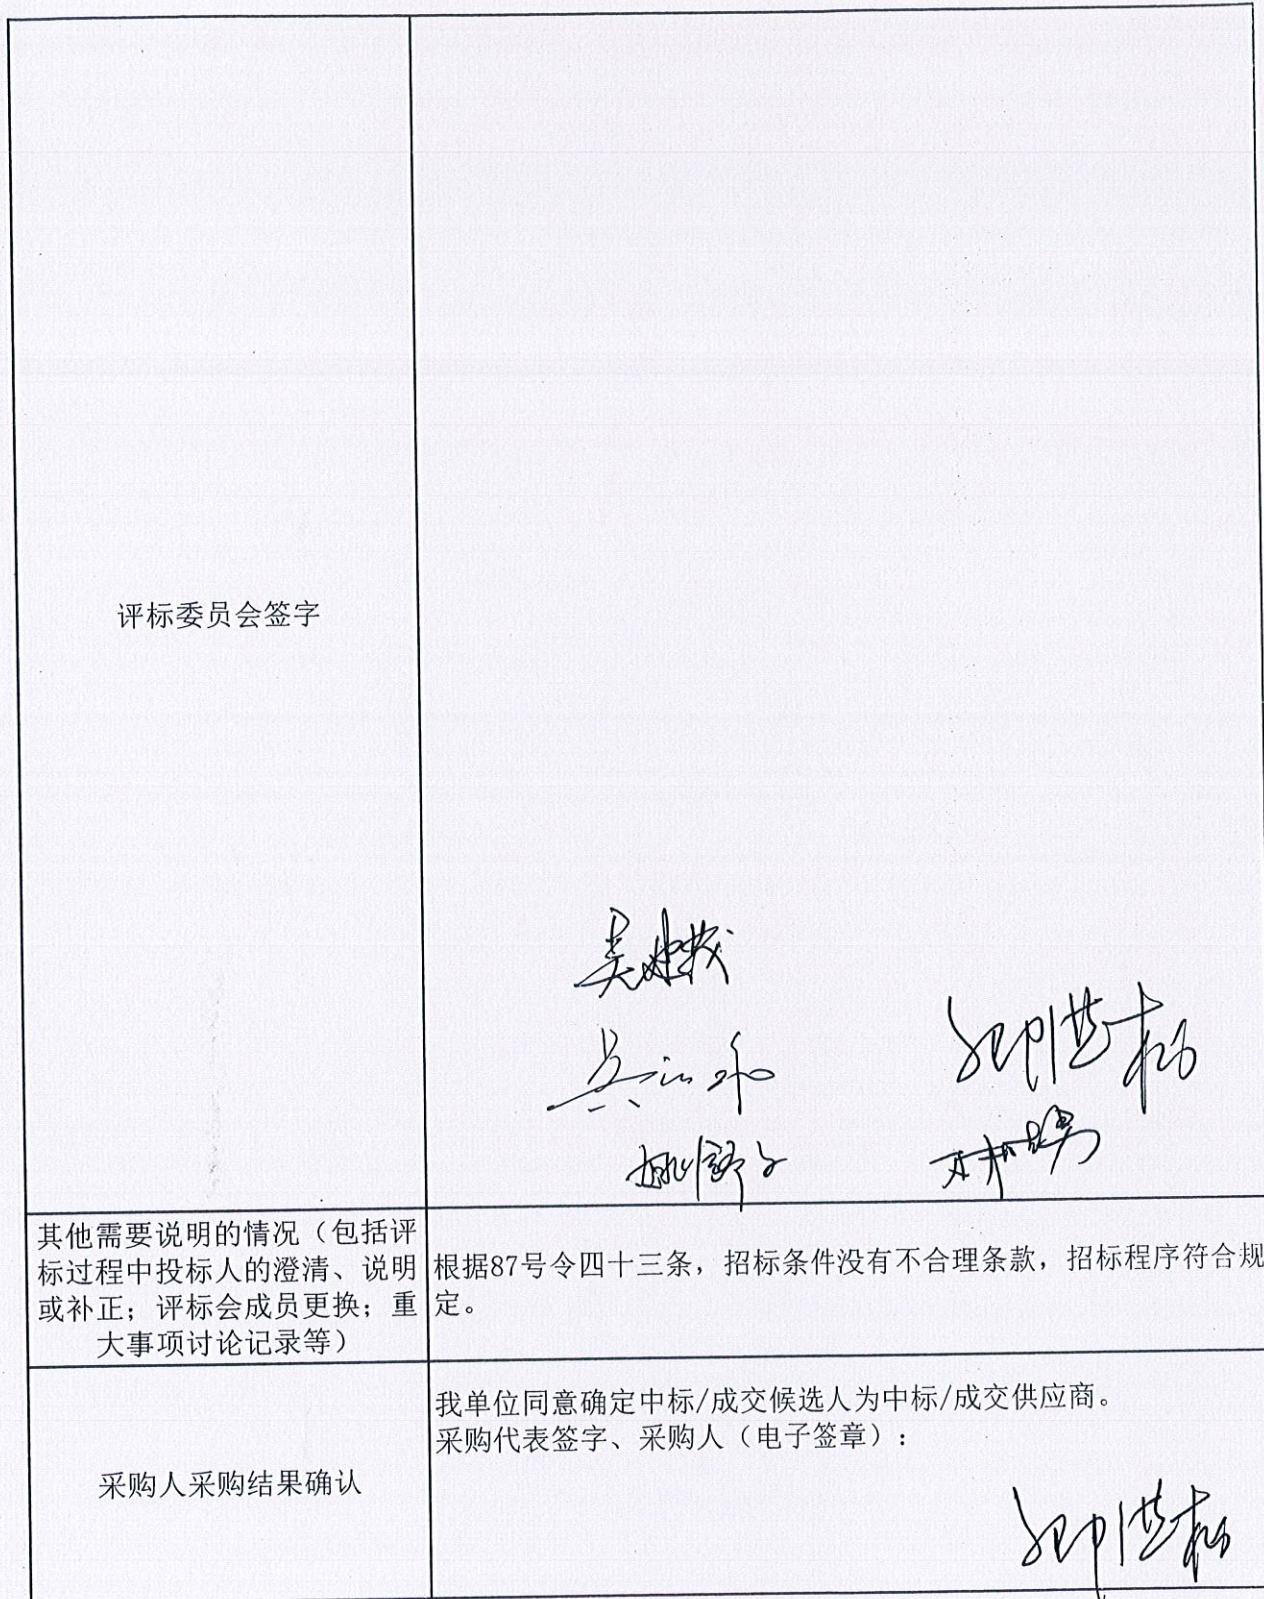 评标委员会签字
其他需要说明的情况（包括评
标过程中投标人的澄清、说明
或补正；评标会成员更换；重
大事项讨论记录等）
根据87号令四十三条，招标条件没有不合理条款，招标程序符合规
定。
采购人采购结果确认
我单位同意确定中标/成交候选人为中标/成交供应商。
采购代表签字、采购人（电子签章）：